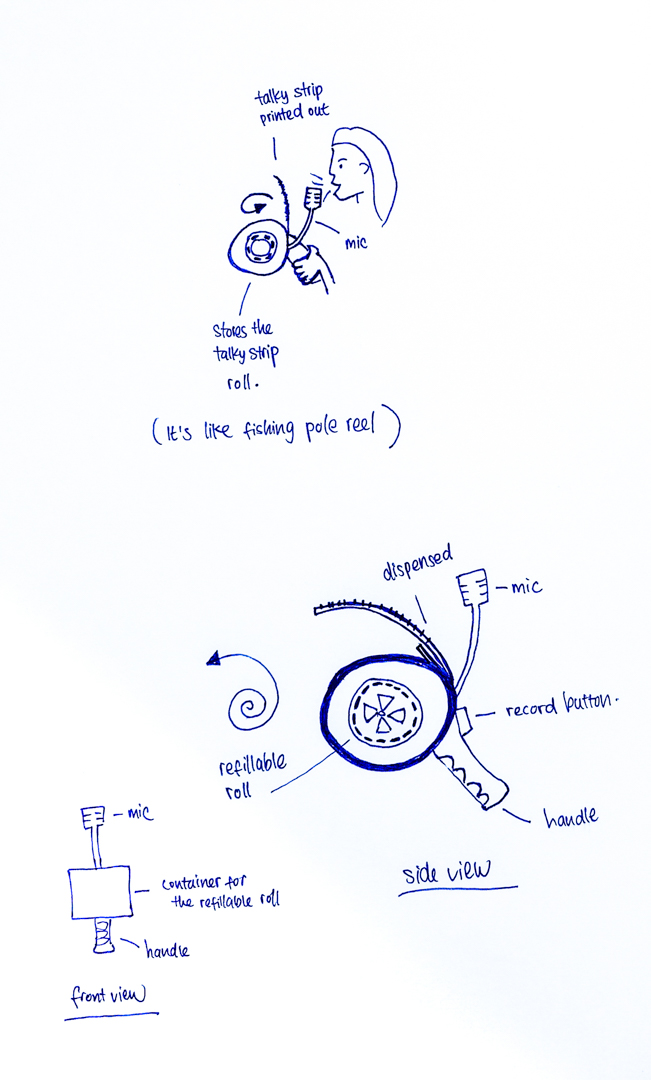 talky strip
printed out
mic
stores the
talky strip
roll.
(It's like fishing pole reel)
dispensed
mic
record button.
refillable
roll
handle
side view
mic
container for
the refillable roll
handle
front view